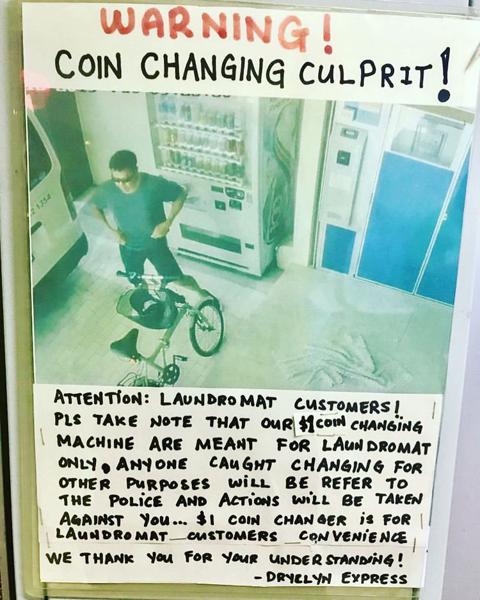 WARNING!
COIN CHANGING CULPRIT!
ATTENTION: LAUNDROMAT CUSTOMERS!
PLS TAKE NOTE THAT OUR $1 COIN CHANGING
MACHINE ARE MEANT FOR LAUNDROMAT
ONLY. ANYONE CAUGHT CHANGING FOR
OTHER PURPOSES WILL BE REFER TO
THE POLICE AND ACTIONS WILL BE TAKEN
AGAINST YOU... $1 COIN CHANGER IS FOR
LAUNDROMAT CUSTOMERS CONVENIENCE
WE THANK YOU FOR YOUR UNDERSTANDING!
- DRYCLYN EXPRESS